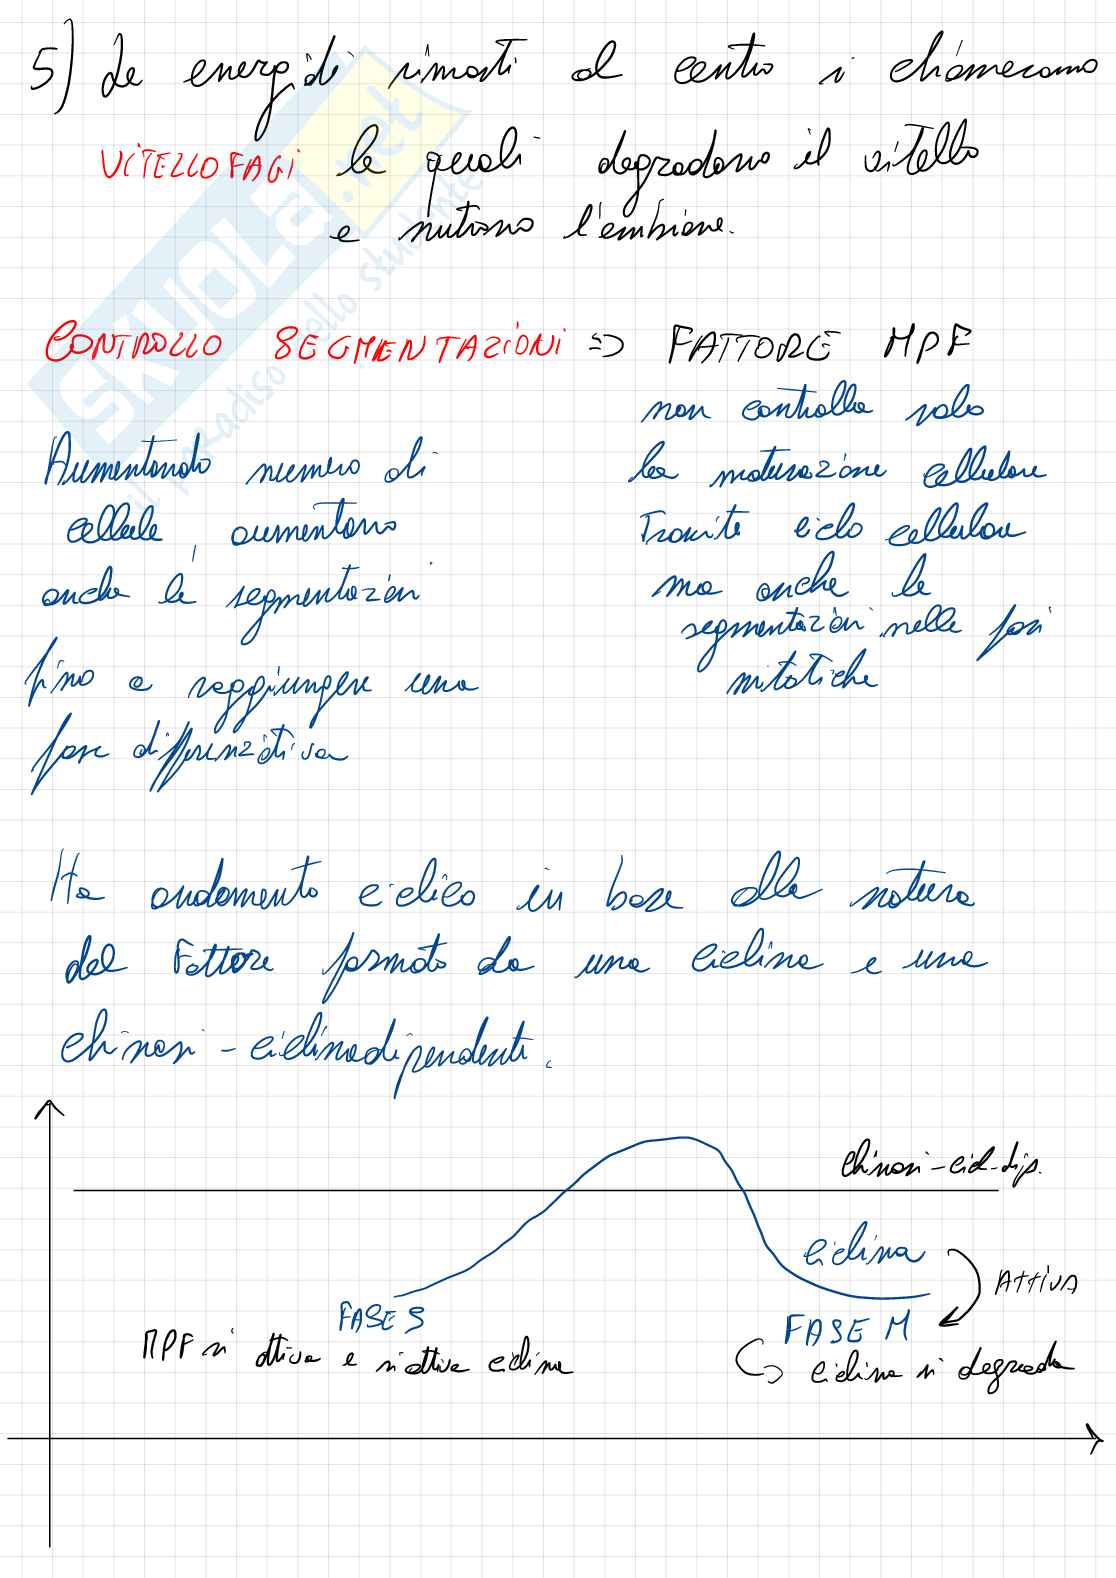 5) Le energidi rimasti al centro si chiameranno
VITELLOFAGI le quali degradano il vitello
e nutrono l'embrione.
CONTROLLO SEGMENTAZIONI => FATTORE MPF
non controlla solo
la maturazione cellulare
Tramite ciclo cellulare
ma anche le
segmentazioni nelle fasi
mitotiche
Aumentando numero di
cellule, aumentano
anche le segmentazioni
fino a raggiungere una
fase differenziativa
Ha andamento ciclico in base alla natura
del Fattore formato da una ciclina e una
chinasi-ciclinadipendente.
chinasi-cicl-dip.
ciclina
ATTIVA
FASE S
FASE M
MPF si attiva e riattiva ciclina
ciclina si degrada
SKUOLA.net
il paradiso dello studente